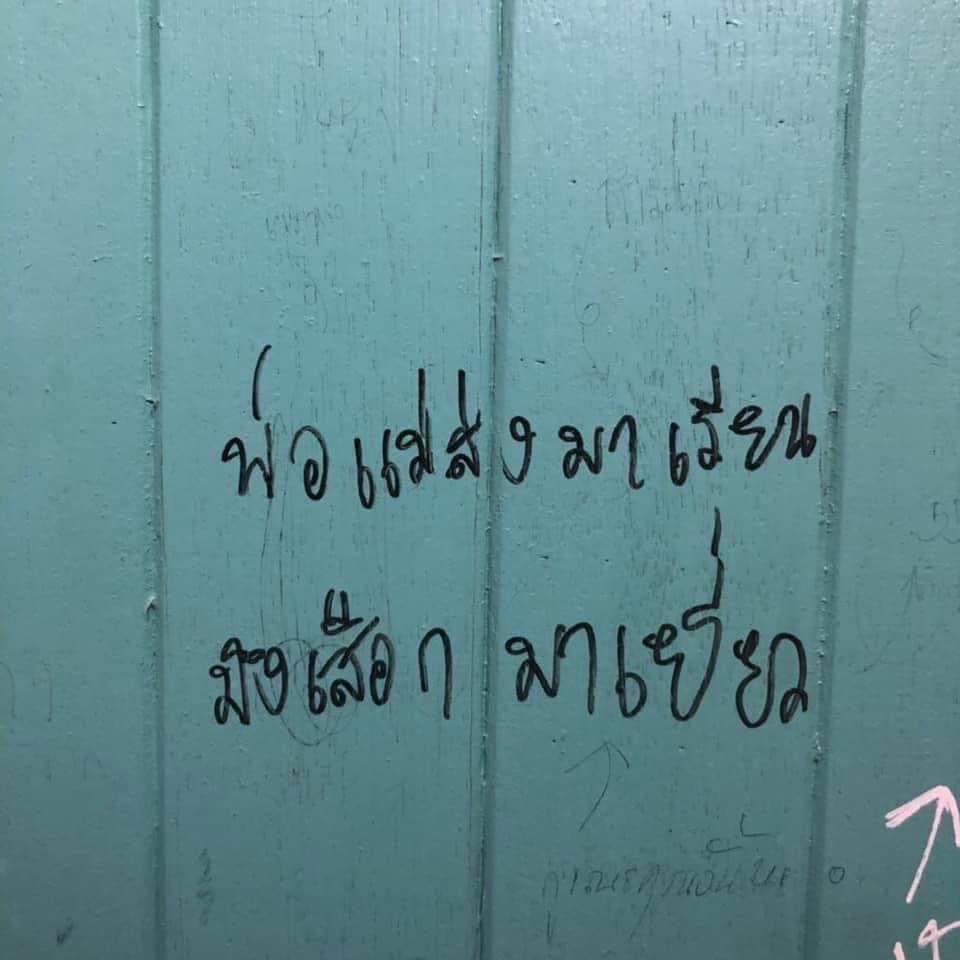 พ่อแม่ส่งมาเรียน
มึงเสือกมาเยี่ยว